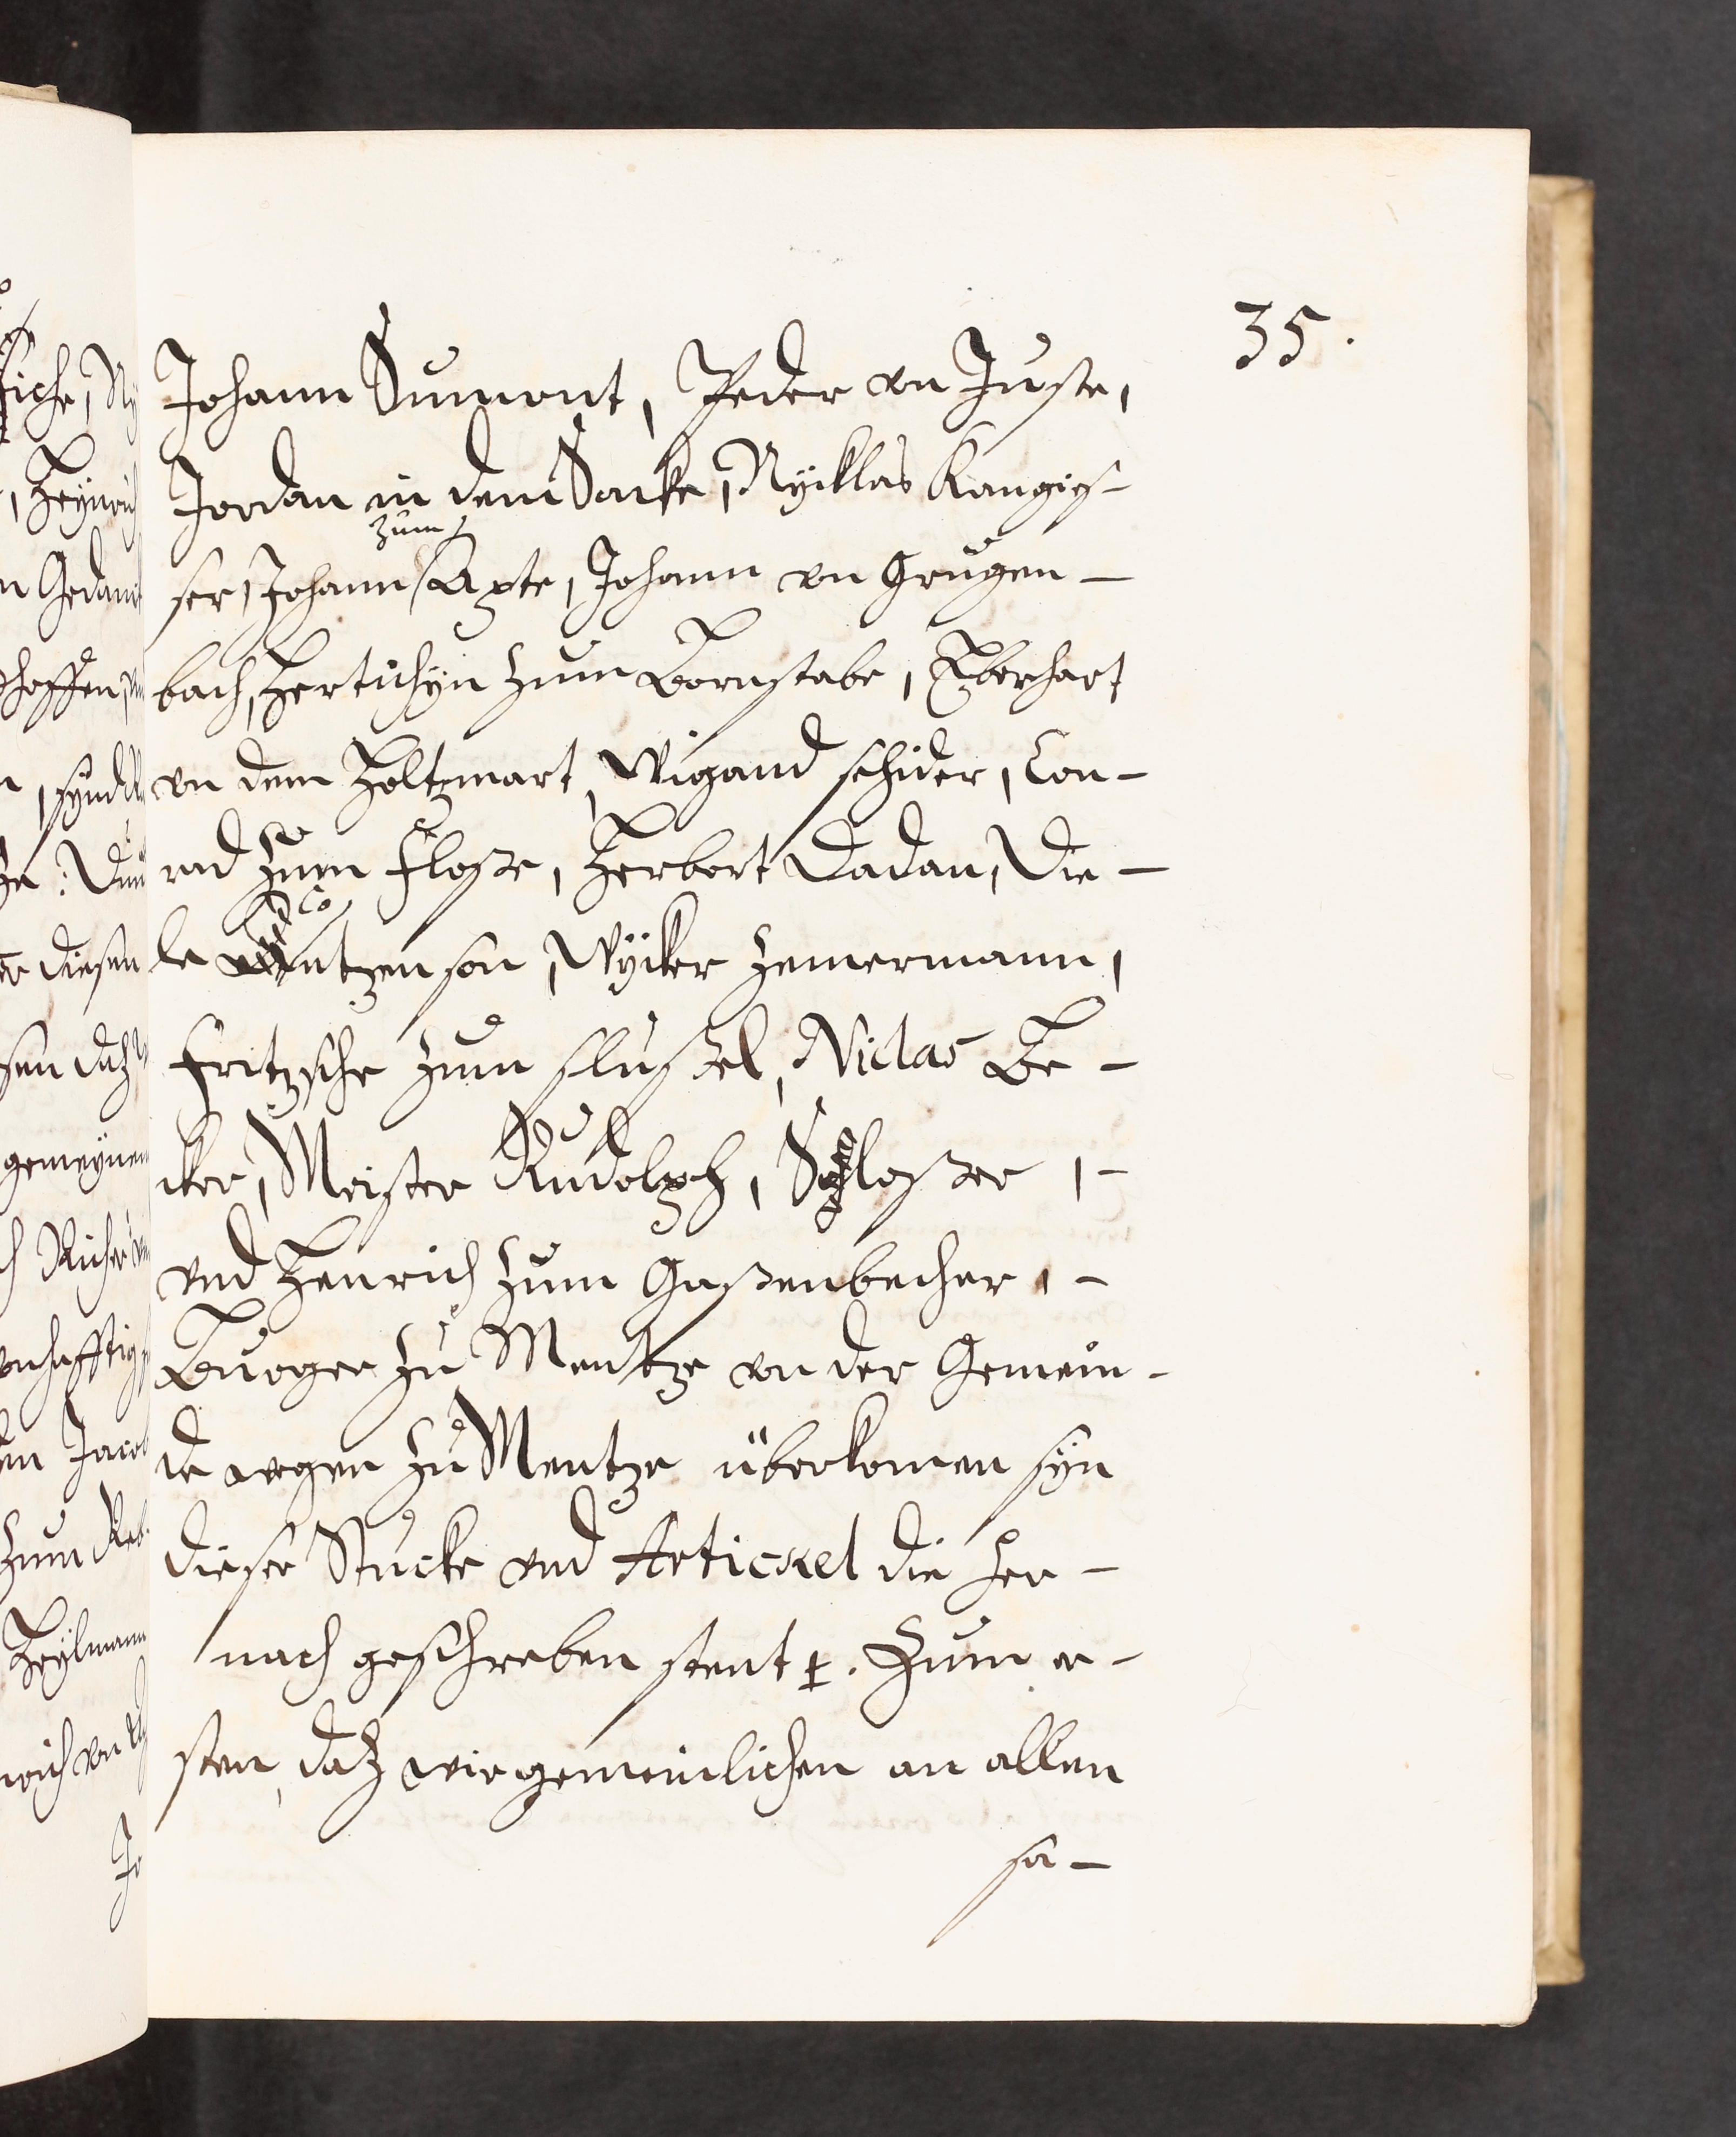 35.
Johann Sumont, Peder vn Juste,
Jordan in dem Sacke, Nycklas Kangieß-
ser, Johann zum Apte, Johann vn Grugen-
bach, Hertichyn zum Bornstabe, Eberhart
vn dem Holtzmart, Wigand schider, Con-
rad zum Floße, Herbort Dadan, Die-
le Contzen son, Wycker Zemermann,
Fritzsche zum slußel, Niclas Be-
cker, Meister Rudolph, Sloßer,-
vnd Henrich zum Gaßenbecher,-
Burger zu Mentze vn der Gemein-
de wegen zu Mentze überkomen syn
dieser Stucke vnd Artickel die her-
nach geschreben stent. Zum er-
sten, daz wir gemeinlichen an allen
sa-